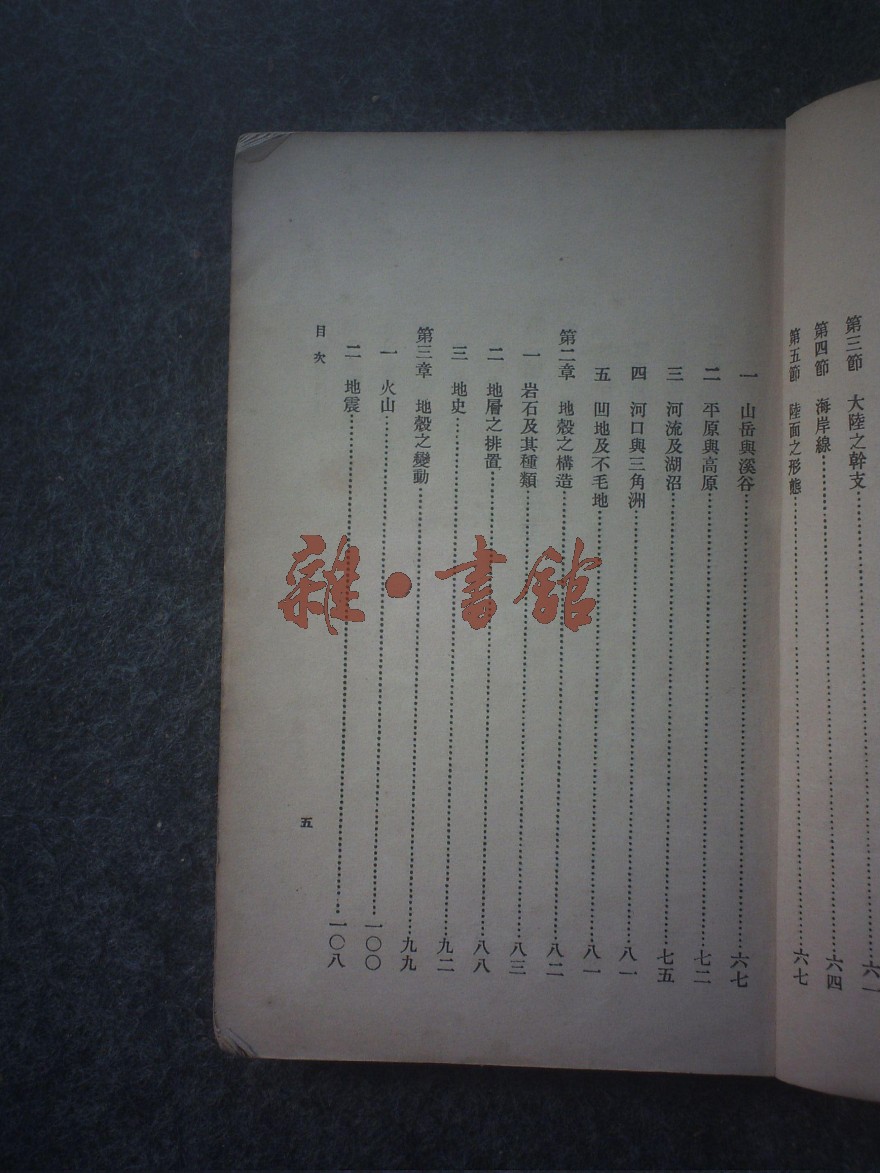 第三節　大陸之幹支……六一
第四節　海岸線……六四
第五節　陸面之形態……六七
一　山岳與溪谷……六七
二　平原與高原……七二
三　河流及湖沼……七五
四　河口與三角洲……八一
五　凹地及不毛地……八一
第二章　地殼之構造……八二
一　岩石及其種類……八三
二　地層之排置……八八
三　地史……九二
第三章　地殼之變動……九九
一　火山……一〇〇
二　地震……一〇八
目次
五
雜·書館